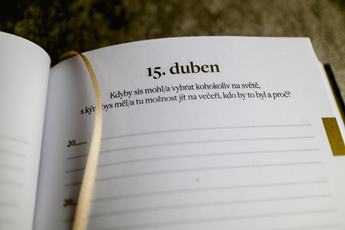 15. duben
Kdyby sis mohl/a vybrat kohokoliv na světě,
s kým bys měl/a tu možnost jít na večeři, kdo by to byl a proč?
20
20